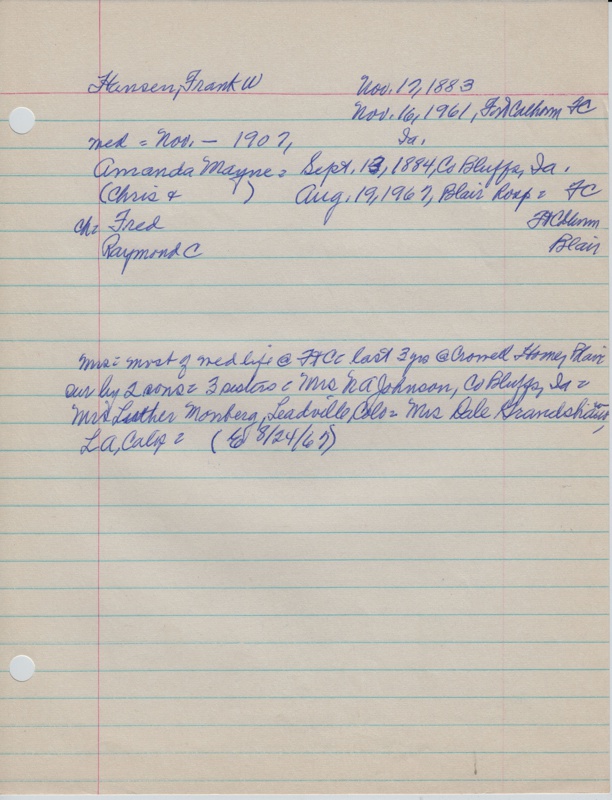 Hansen, Frank W Nov. 17, 1883
Nov. 16, 1961, Ft Calhoun FC
med = Nov. — 1907, Ia.
Amanda Mayne = Sept. 13, 1884, Co Bluffs, Ia.
(Chris & ) Aug. 19, 1967, Blair Hosp = FC
ch = Fred Ft Calhoun
Raymond C Blair
Mrs = most of med life @ FtC = last 3 yrs @ Crowell Home, Blair
sur by 2 sons = 3 sisters = Mrs N A Johnson, Co Bluffs, Ia =
Mrs Luther Monberg, Leadville, Colo = Mrs Dale Grandshaw,
L A, Calif = (E 8/24/67)